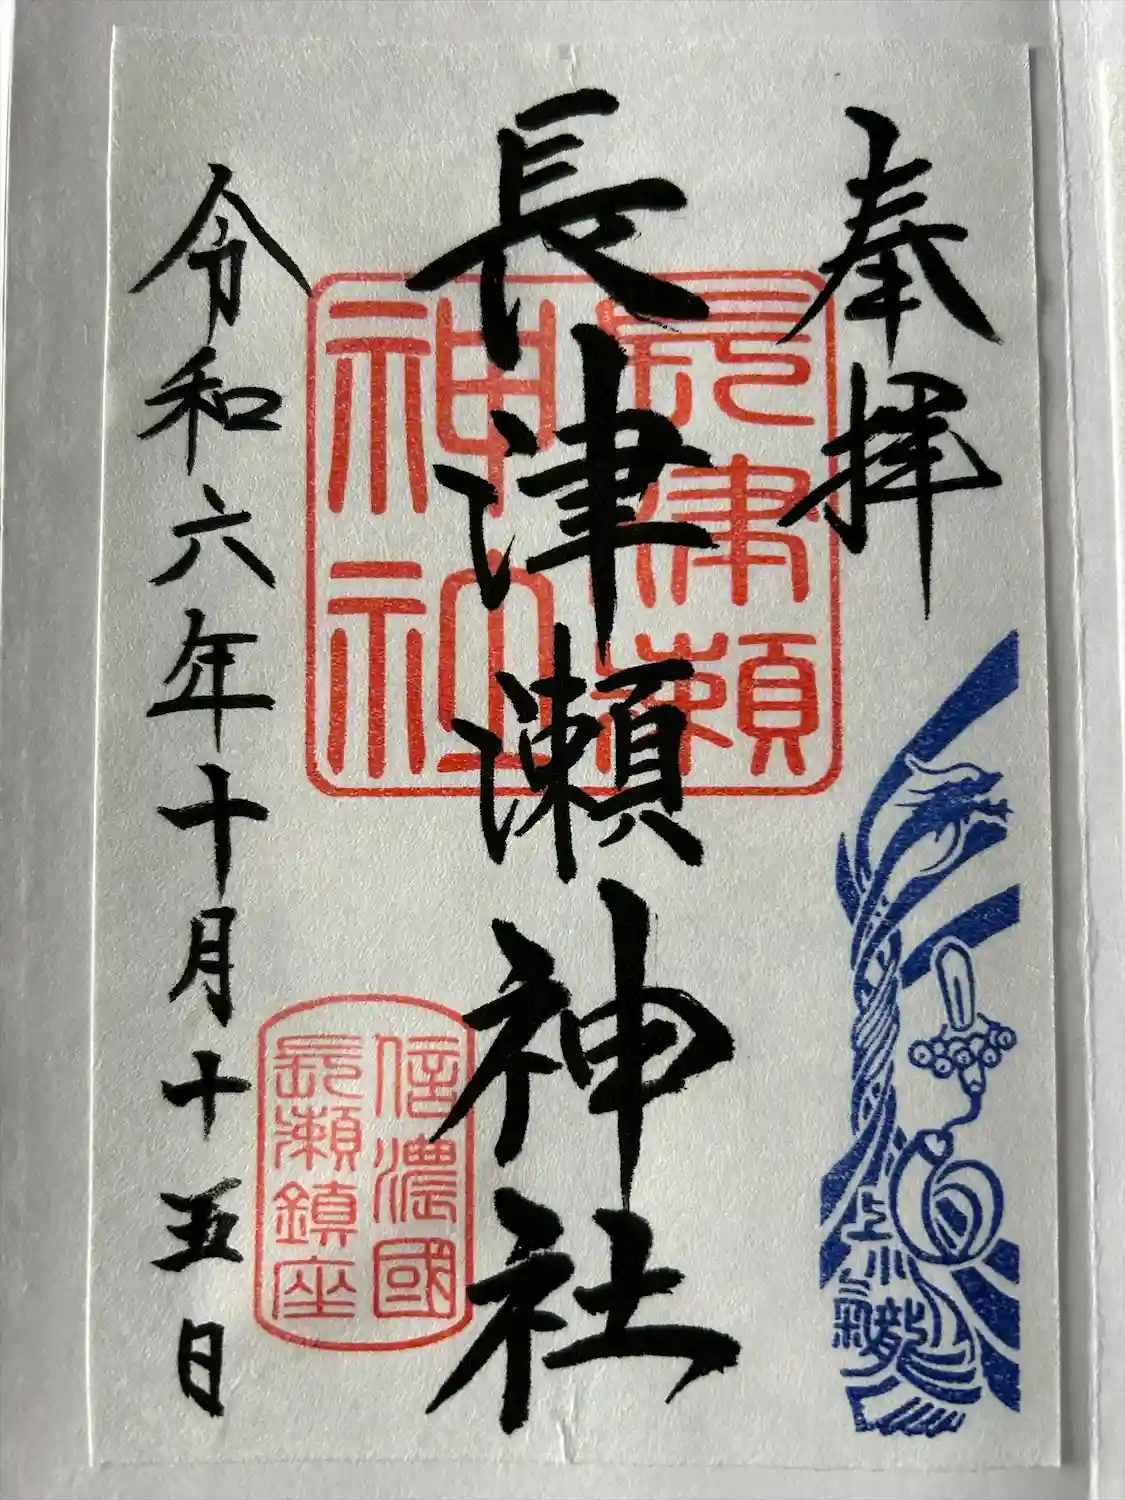 奉拝
長津瀬神社
令和六年十月十五日
長津瀬
神社
信濃國
長瀬鎮座